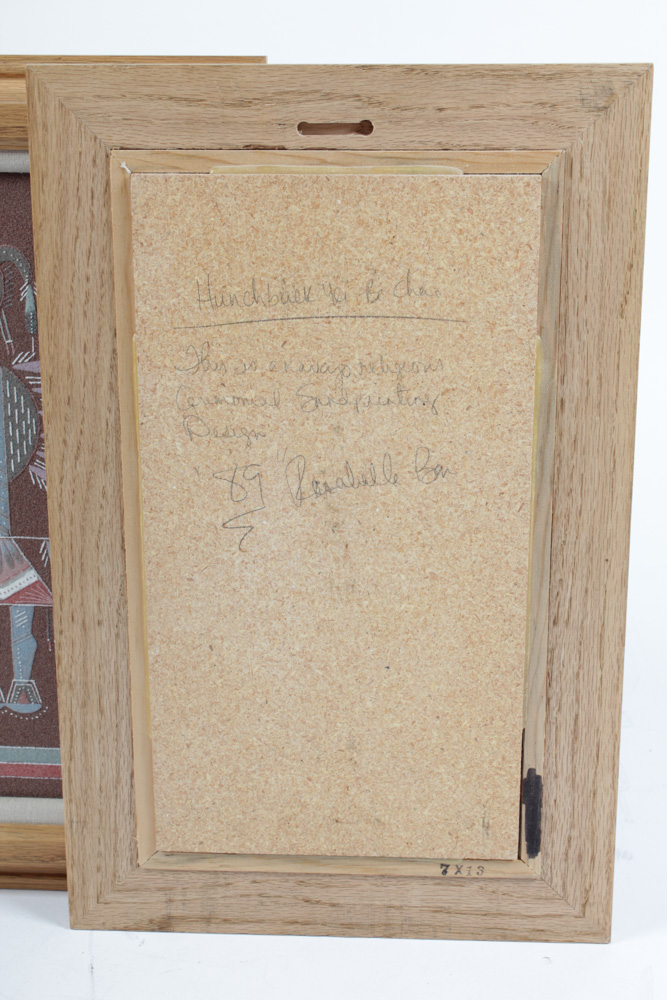 Hunchback Yei Bi Chai
This is a navajo religious
Ceremonial Sandpainting
Design
'89 Rosabelle Ben
7X13